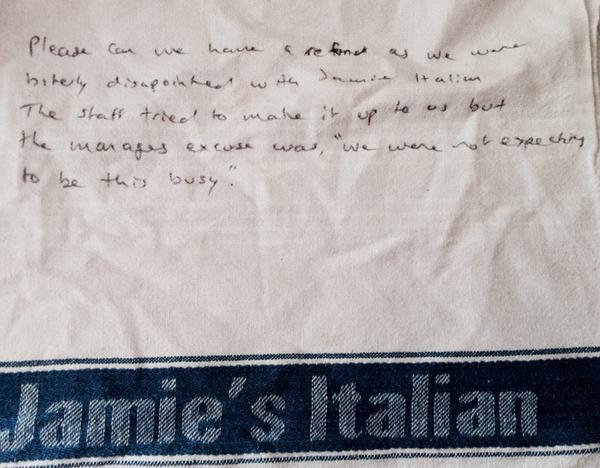 Please can we have a refund as we were
bitterly disapointed with Jamie Italian
The staff tried to make it up to us but
the manages excuse was, "we were not expecting
to be this busy".
Jamie's Italian